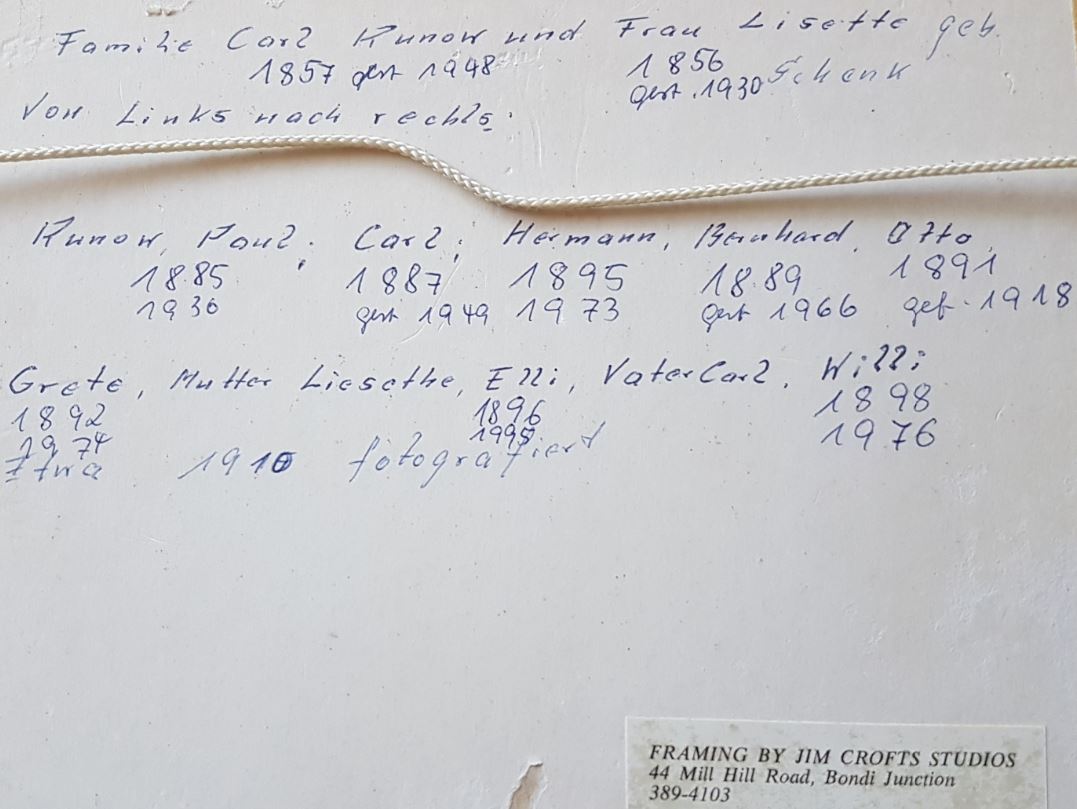 Familie Carl Kunow und Frau Lisette geb.
1857 gest 1948 1856 Schenk
gest. 1930
Von Links nach rechts:
Kunow, Paul, Carl, Hermann, Bernhard, Otto,
1885 1887 1895 1889 1891
1936 gest 1949 1973 gest 1966 gef. 1918
Grete, Mutter Liesethe, Elli, Vater Carl, Willi
1892 1896 1898
1974 1976
Etwa 1910 fotografiert
FRAMING BY JIM CROFTS STUDIOS
44 Mill Hill Road, Bondi Junction
389-4103